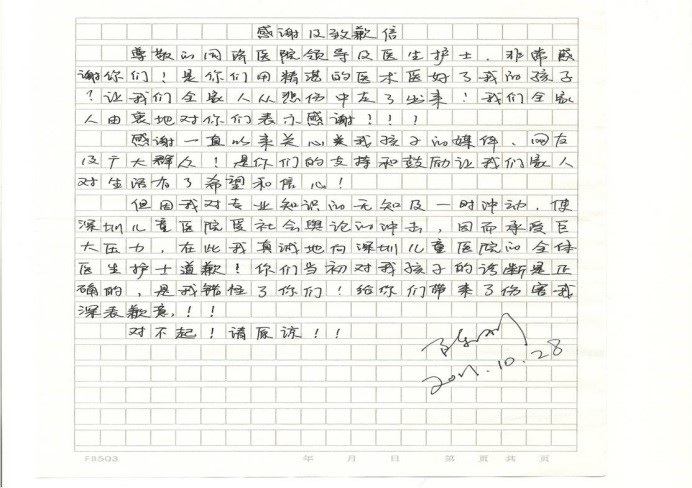 感谢及致歉信
尊敬的同济医院领导及医生护士、非常感
谢你们！是你们用精湛的医术医好了我的孩子
！让我们全家人从悲伤中走了出来！我们全家
人由衷地对你们表示感谢！！！
感谢一直以来关心关爱我孩子的媒体、网友
及广大群众！是你们的支持和鼓励让我们家人
对生活有了希望和信心！
但因我对专业知识的无知及一时冲动，使
深圳儿童医院受社会舆论的冲击，因而承受巨
大压力，在此我真诚地向深圳儿童医院的全体
医生护士道歉！你们当初对我孩子的诊断是正
确的，是我错怪了你们！给你们带来了伤害我
深表歉意！！！
对不起！请原谅！！
2011.10.28
F8503 年 月 日 第 页 共 页